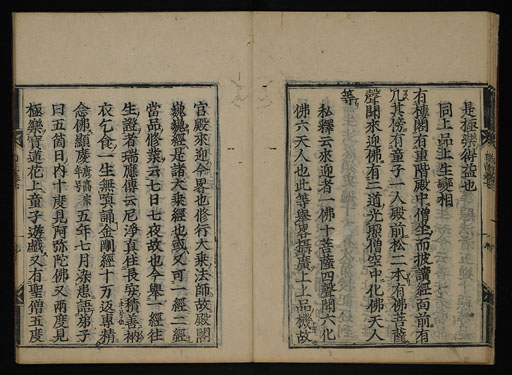 是極樂得益也
同上品上生變相
有樓閣有重階殿中僧坐而披讀經面前有
几其傍有童子一人殿前松二本有佛菩薩
聲聞來迎佛有二道光照僧空中化佛天人
等
私釋云來迎者一佛十菩薩四聲聞六化
佛六天人也此等舉畧攝廣上上品機故
宮殿來迎今畧也修行大乘法師故殿閣
巍巍經是諸大乘經也或又可一經二經
當品修業云七日七夜故也今舉一經往
生證者瑞應傳云尼淨真住長安積善寺衲
衣乞食一生無嗔誦金剛經十万返專精
念佛顯慶唐高宗年号五年七月染患語弟子
曰五箇日內十度見阿弥陀佛又兩度見
極樂寶蓮花上童子遊戲又有聖僧五度